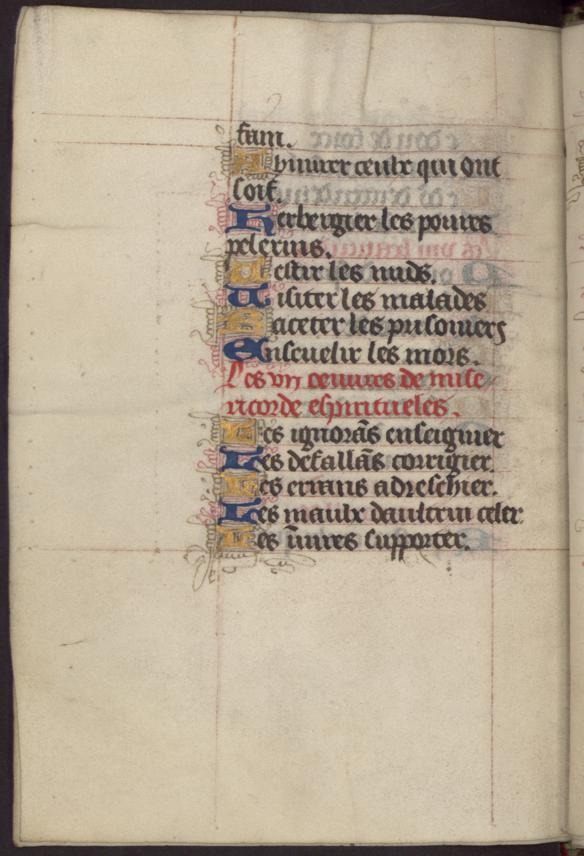 fam.
Abuurer ceulx qui ont
soif.
Herbergier les poures
pelerins.
Vestir les nuds.
Uisiter les malades
Raceter les prisoniers
Enseuelir les mors.
Les vii oeuures de mise
ricorde espiritueles.
Les ignorãs enseignier
Les defallãs corrigier.
Les errans adreschier.
Les maulx daultrui celer
Les iniures supporter.